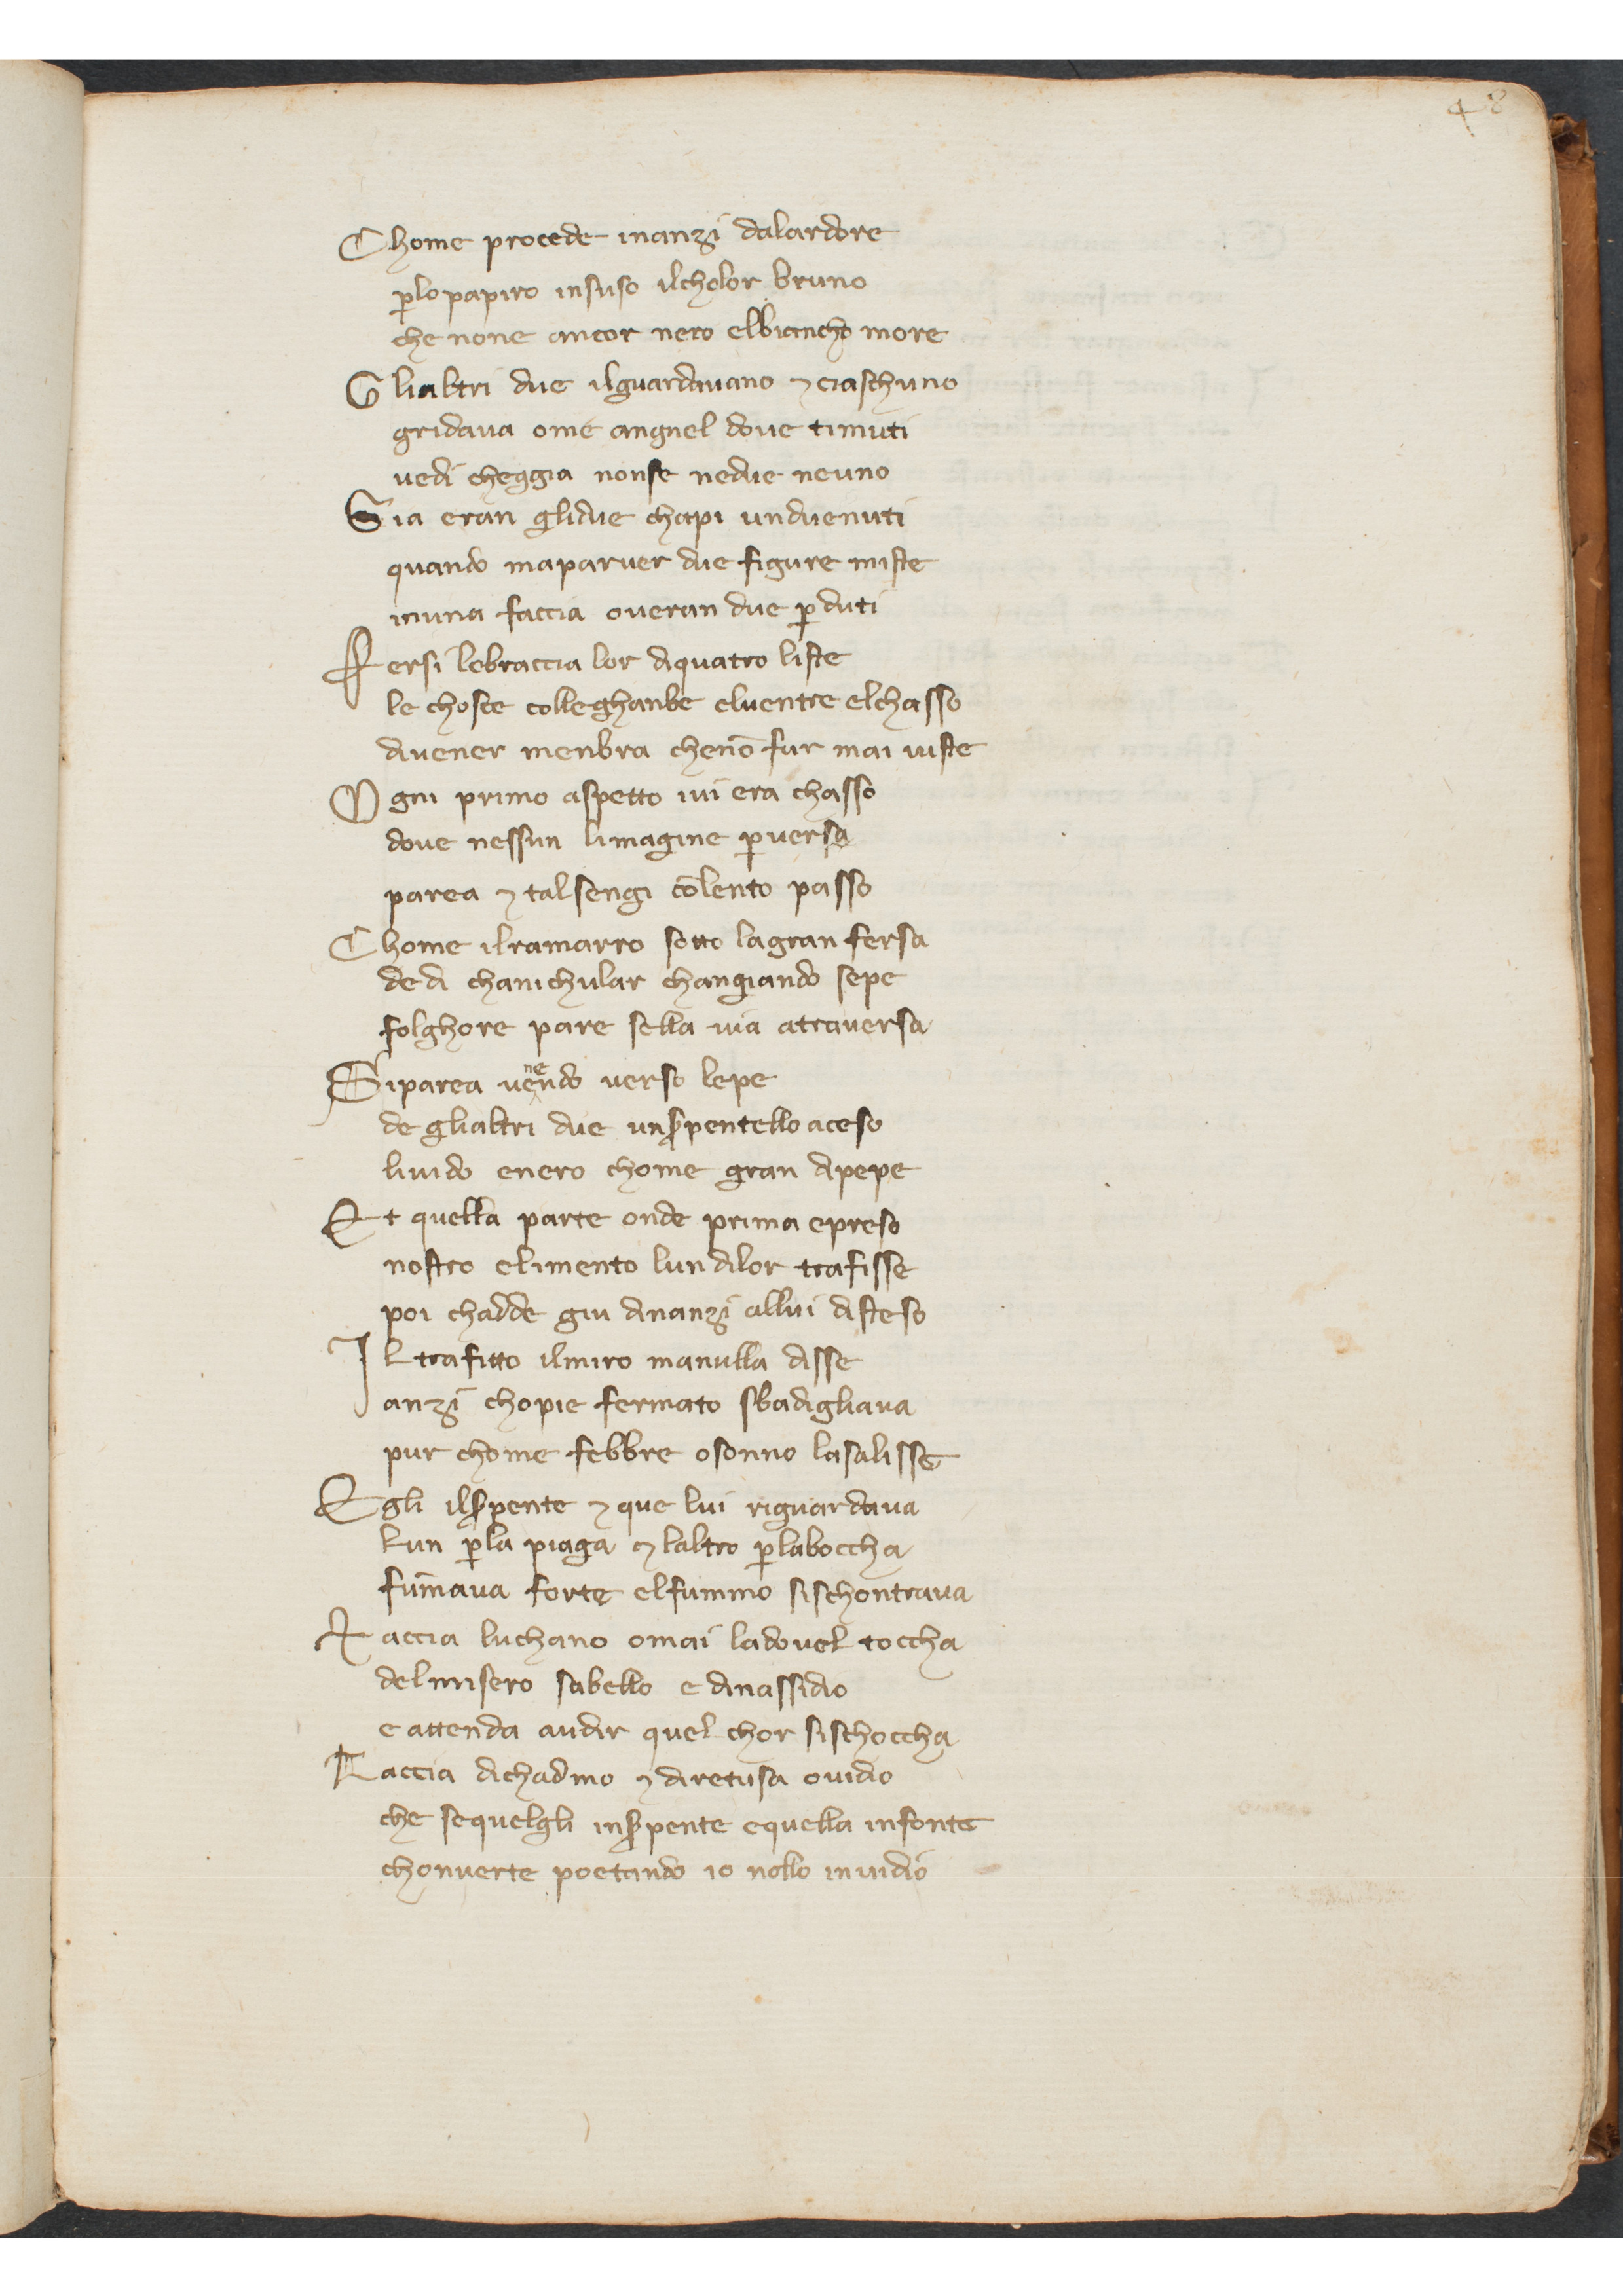 48
Chome procede inanzi dalardore
ꝑlo papiro insuso ilcholor bruno
che none ancor nero elbiancho more
Gliabtri due ilguardauano ⁊ ciaschuno
gridaua ome angnel doue timuti
uedi cheggia nonse nedue neuno
Gia eran glidue chapi unduenuti
quando maparuer due figure miste
inuna faccia oueran due ꝑduti
Fersi lebraccia lor diquatro liste
le choste colleghanbe eluentre elchasso
diuener menbra chenō fur mai uiste
Ogni primo aspetto iui era chasso
doue nessun limagine ꝑuersa
parea ⁊ talsengi cōlento passo
Chome ilramarro sotto lagran fersa
dedi chanichular changiando sepe
folghore pare sella uia atrauersa
Siparea venendo verso lepe
de gliabtri due unsꝑpentello aceso
liuido enero chome gran dipepe
Et quella parte onde prima epreso
nostro elimento lun dilor trafisse
poi chadde giu dinanzi allui disteso
Il trafitto ilmiro manulla disse
anzi chopie fermato sbadigliaua
pur chome febbre osonno lasalisse
Egli ilsꝑpente ⁊ que lui riguardaua
Lun ꝑla piaga ⁊ labtro ꝑlaboccha
fūmaua forte elfummo sischontraua
Taccia luchano omai ladouel toccha
delmisero sabello e dinassidio
e attenda audir quel chor sischoccha
Taccia dichadmo ⁊ diretusa ouidio
che sequelgli insꝑpente equella infonte
chonuerte poetando io nollo inuidio